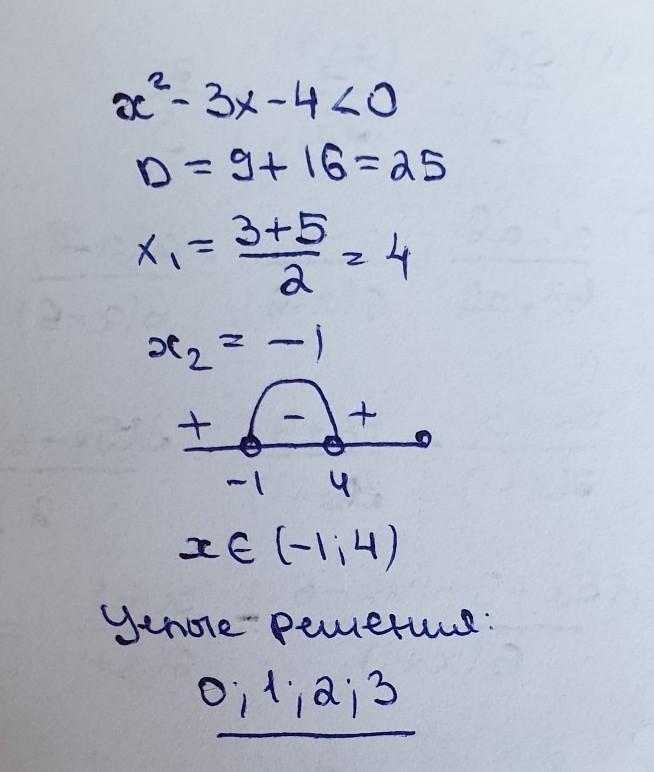 x² - 3x - 4 < 0
D = 9 + 16 = 25
x₁ = (3+5)/2 = 4
x₂ = -1
+ - +
-1 4
x ∈ (-1; 4)
Целые решения:
0; 1; 2; 3